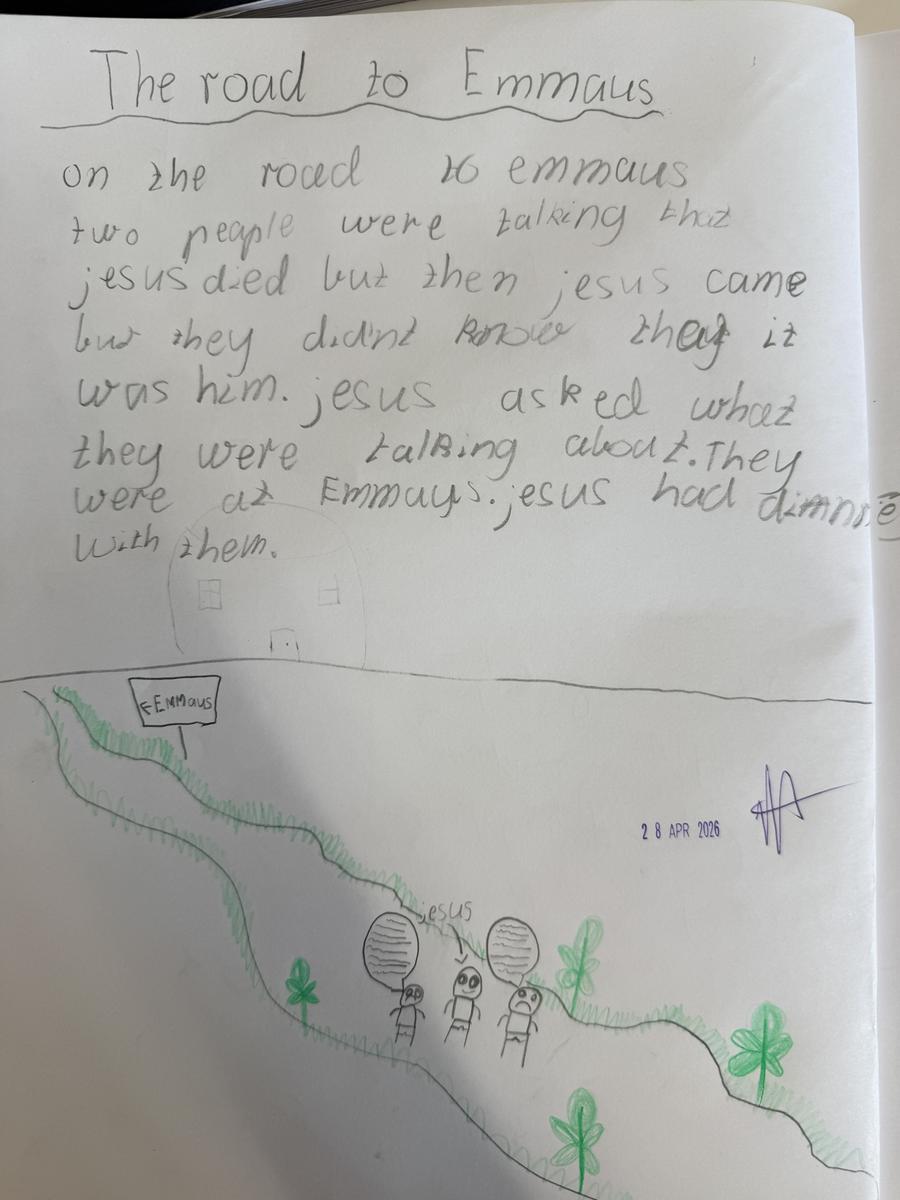 The road to Emmaus
on the road to emmaus
two people were talking that
jesus died but then jesus came
but they didnt know that it
was him. jesus asked what
they were talking about. They
were at Emmaus. jesus had dinnre
with them.
←EMMaus
28 APR 2026
jesus